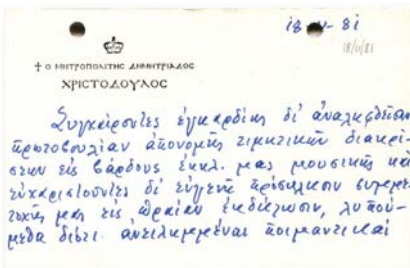 18-11-81
18/11/81
† Ο ΜΗΤΡΟΠΟΛΙΤΗΣ ΔΗΜΗΤΡΙΑΔΟΣ
ΧΡΙΣΤΟΔΟΥΛΟΣ
Συγχαίροντες ἐγκαρδίως δι' ἀναληφθεῖσαν
πρωτοβουλίαν ἀπονομῆς τιμητικῶν διακρί-
σεων εἰς βάρδους ἐκκλ. μας μουσικῆς καὶ
εὐχαριστοῦντες δι' εὐγενῆ πρόσκλησιν συμμε-
τοχῆς μας εἰς ὡραίαν ἐκδήλωσιν, λυπού-
μεθα διότι ἀντιλημμέναι ποιμαντικαὶ